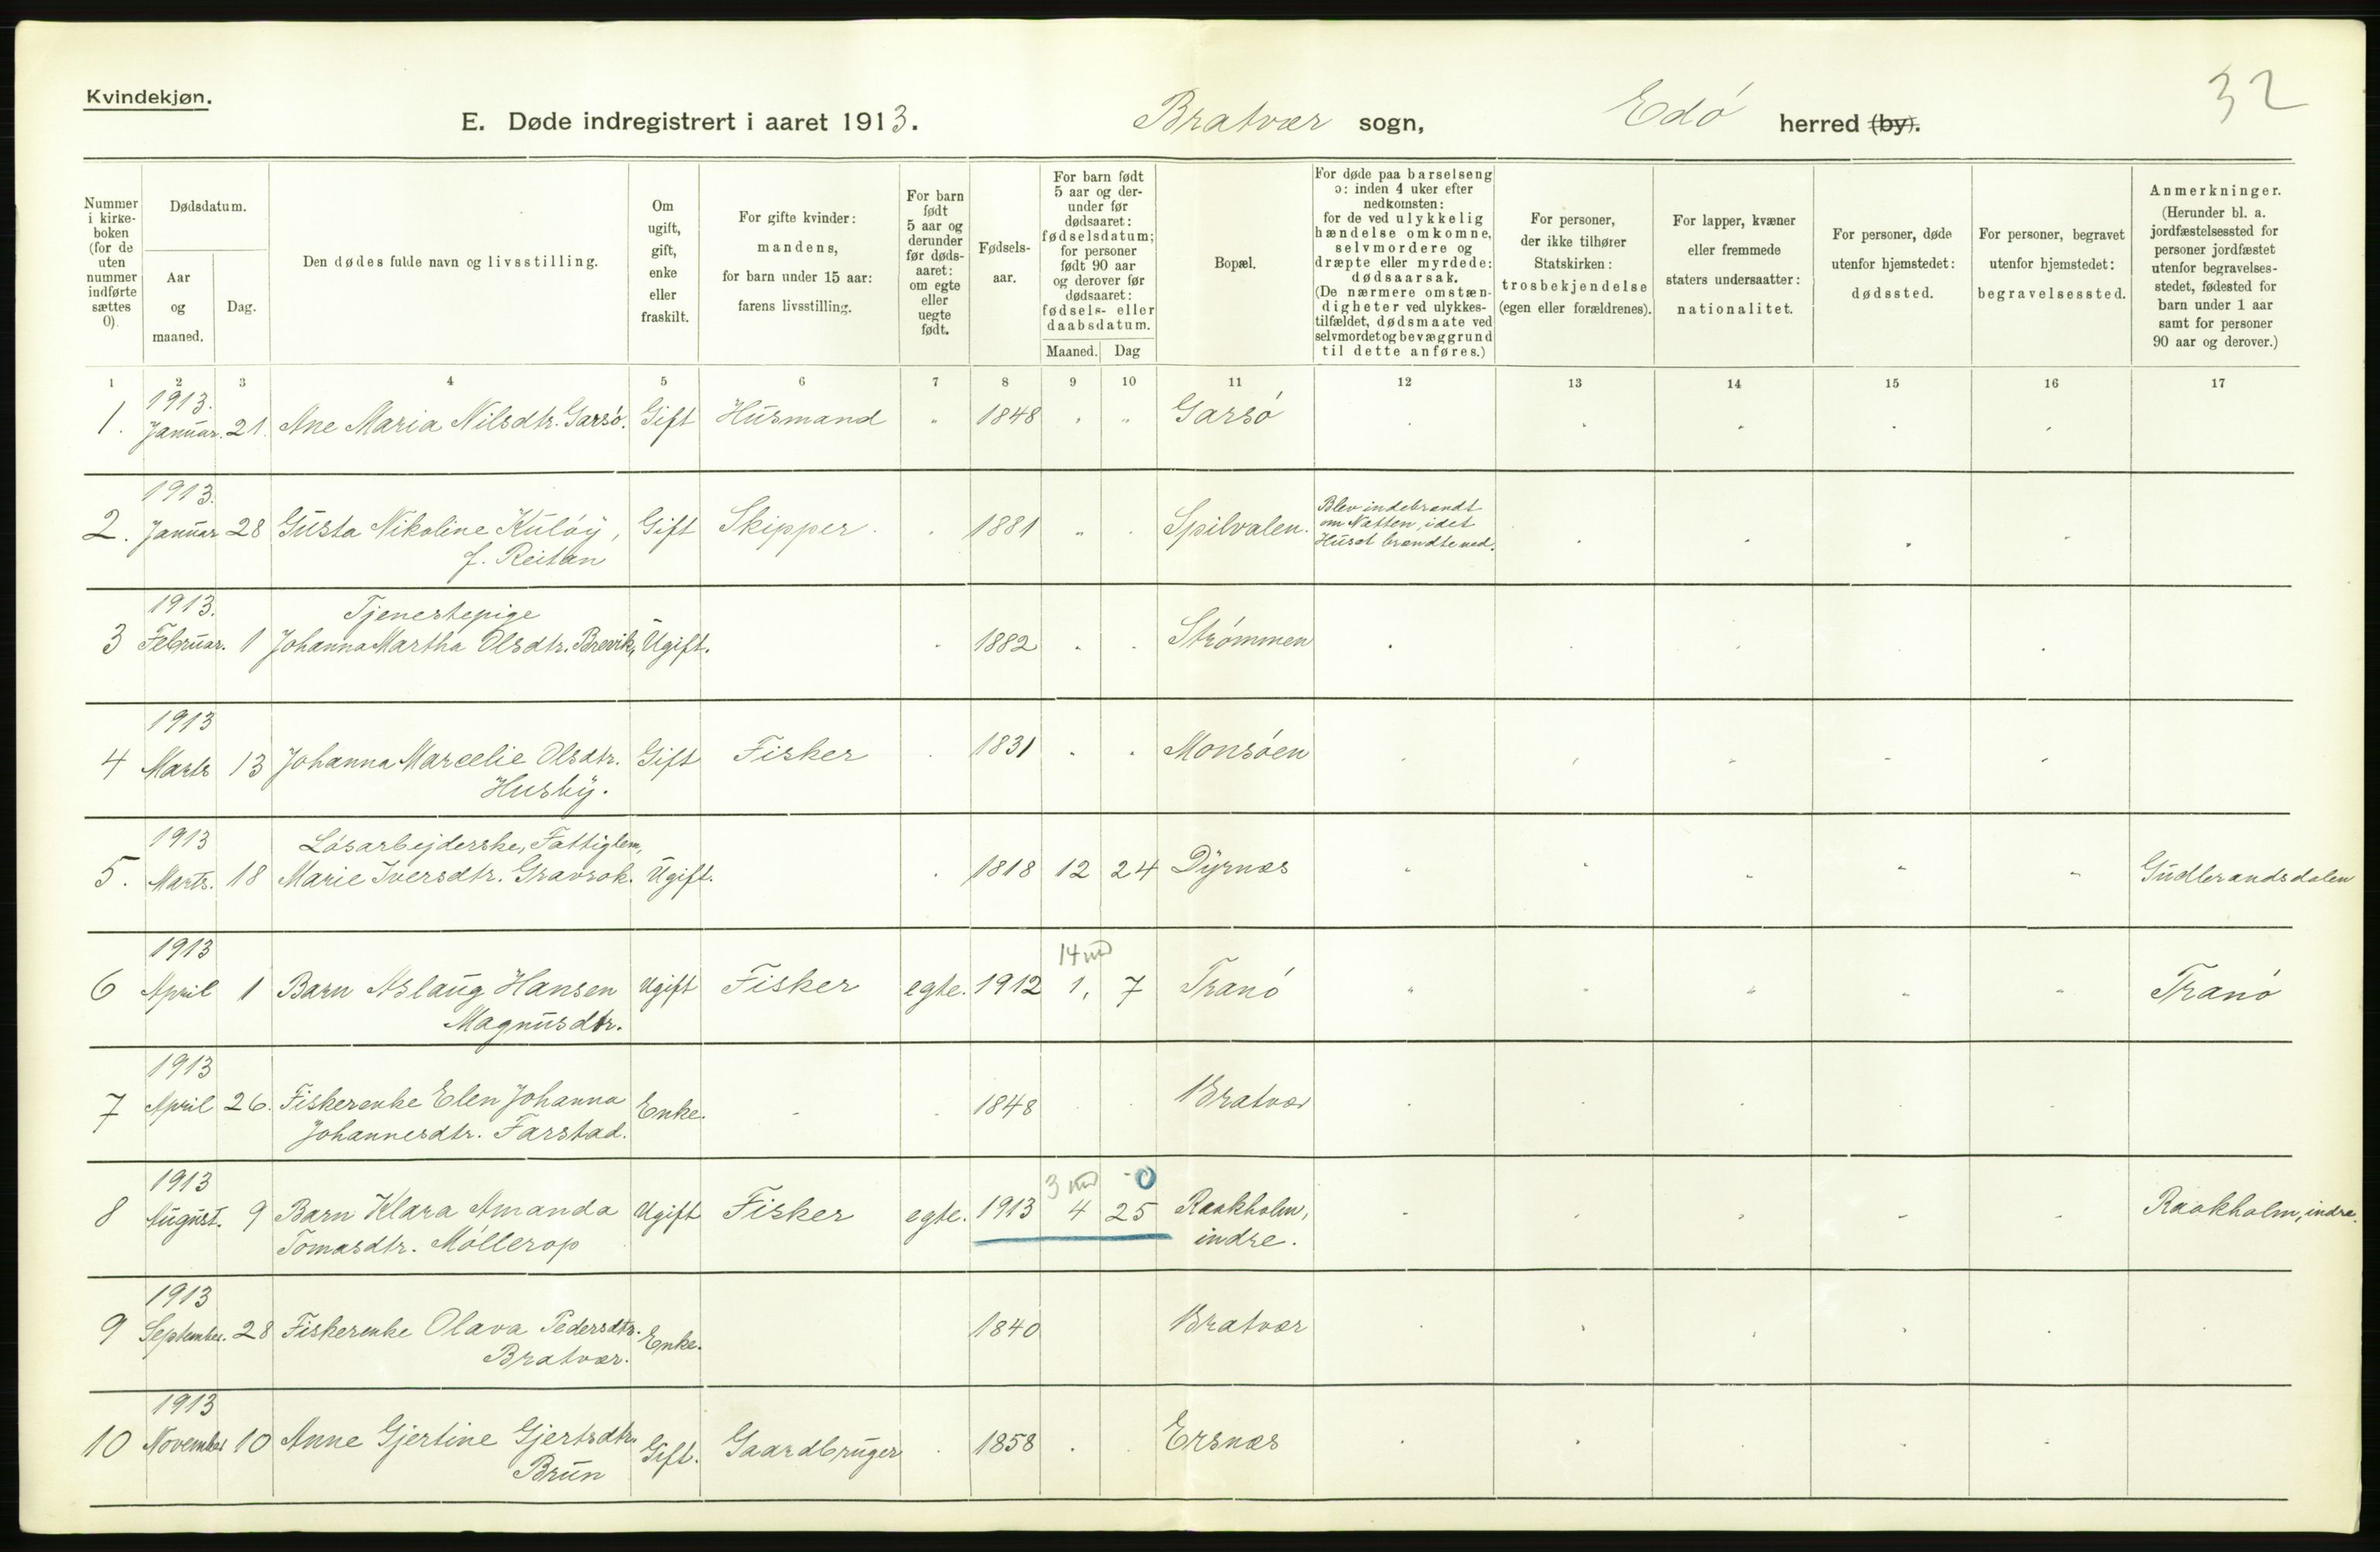 32
Kvindekjøn.
E. Døde indregistrert i aaret 1913. Bratvær sogn, Edö herred (by).
Nummer i kirke-boken (for de uten nummer indførte sættes 0).
Dødsdatum.
Aar og maaned.
Dag.
Den dødes fulde navn og livsstilling.
Om ugift, gift, enke eller fraskilt.
For gifte kvinder: mandens, for barn under 15 aar: farens livsstilling.
For barn født 5 aar og derunder før døds-aaret: om egte eller uegte født.
Fødsels-aar.
For barn født 5 aar og der-under før dødsaaret: fødselsdatum; for personer født 90 aar og derover før dødsaaret: fødsels- eller daabsdatum.
Maaned. Dag
Bopæl.
For døde paa barselseng ɔ: inden 4 uker efter nedkomsten: for de ved ulykkelig hændelse omkomne, selvmordere og dræpte eller myrdede: dødsaarsak. (De nærmere omstæn-digheter ved ulykkes-tilfældet, dødsmaate ved selvmordet og bevæggrund til dette anføres.)
For personer, der ikke tilhører Statskirken: trosbekjendelse (egen eller forældrenes).
For lapper, kvæner eller fremmede staters undersaatter: nationalitet.
For personer, døde utenfor hjemstedet: dødssted.
For personer, begravet utenfor hjemstedet: begravelsessted.
Anmerkninger. (Herunder bl. a. jordfæstelsessted for personer jordfæstet utenfor begravelses-stedet, fødested for barn under 1 aar samt for personer 90 aar og derover.)
1 2 3 4 5 6 7 8 9 10 11 12 13 14 15 16 17
1913.
1. Januar. 21. Ane Maria Nilsdtr. Garsö. Gift Husmand " 1848 " " Garsö
1913.
2. Januar 28 Gusta Nikoline Kulöy, Gift Skipper 1881 " Spilvalen. Blev indebrændt om Natten, idet Huset brændte ned.
f. Reitan
1913. Tjenestepige
3 Februar. 1 Johanna Martha Olsdtr. Brevik, Ugift. 1882 Strömmen
1913
4 Marts 13 Johanna Marcelie Olsdtr. Gift Fisker 1831 Monsöen
Husby.
1913 Lösarbejderske, Fattiglem,
5. Marts. 18 Marie Iversdtr. Gravrok. Ugift. 1818 12 24 Dyrnæs " " " " " Gudbrandsdalen
1913 14 md
6 April 1 Barn Aslaug Hansen Ugift Fisker egte. 1912 1, 7 Tranö " " " " " Tranö
Magnusdtr.
1913
7 April 26. Fiskerenke Elen Johanna Enke. 1848 Bratvær
Johannesdtr. Farstad.
1913 3 md 0
8 August. 9 Barn Klara Amanda Ugift Fisker egte. 1913 4 25 Raakholm, Raakholm, indre.
Tomasdtr. Möllerop indre.
1913
9 September. 28 Fiskerenke Olava Pedersdtr. Enke. 1840 Bratvær
Bratvær.
1913
10 November 10 Anne Gjertine Gjertsdtr. Gift. Gaardbruger 1858 Ersnæs
Brun